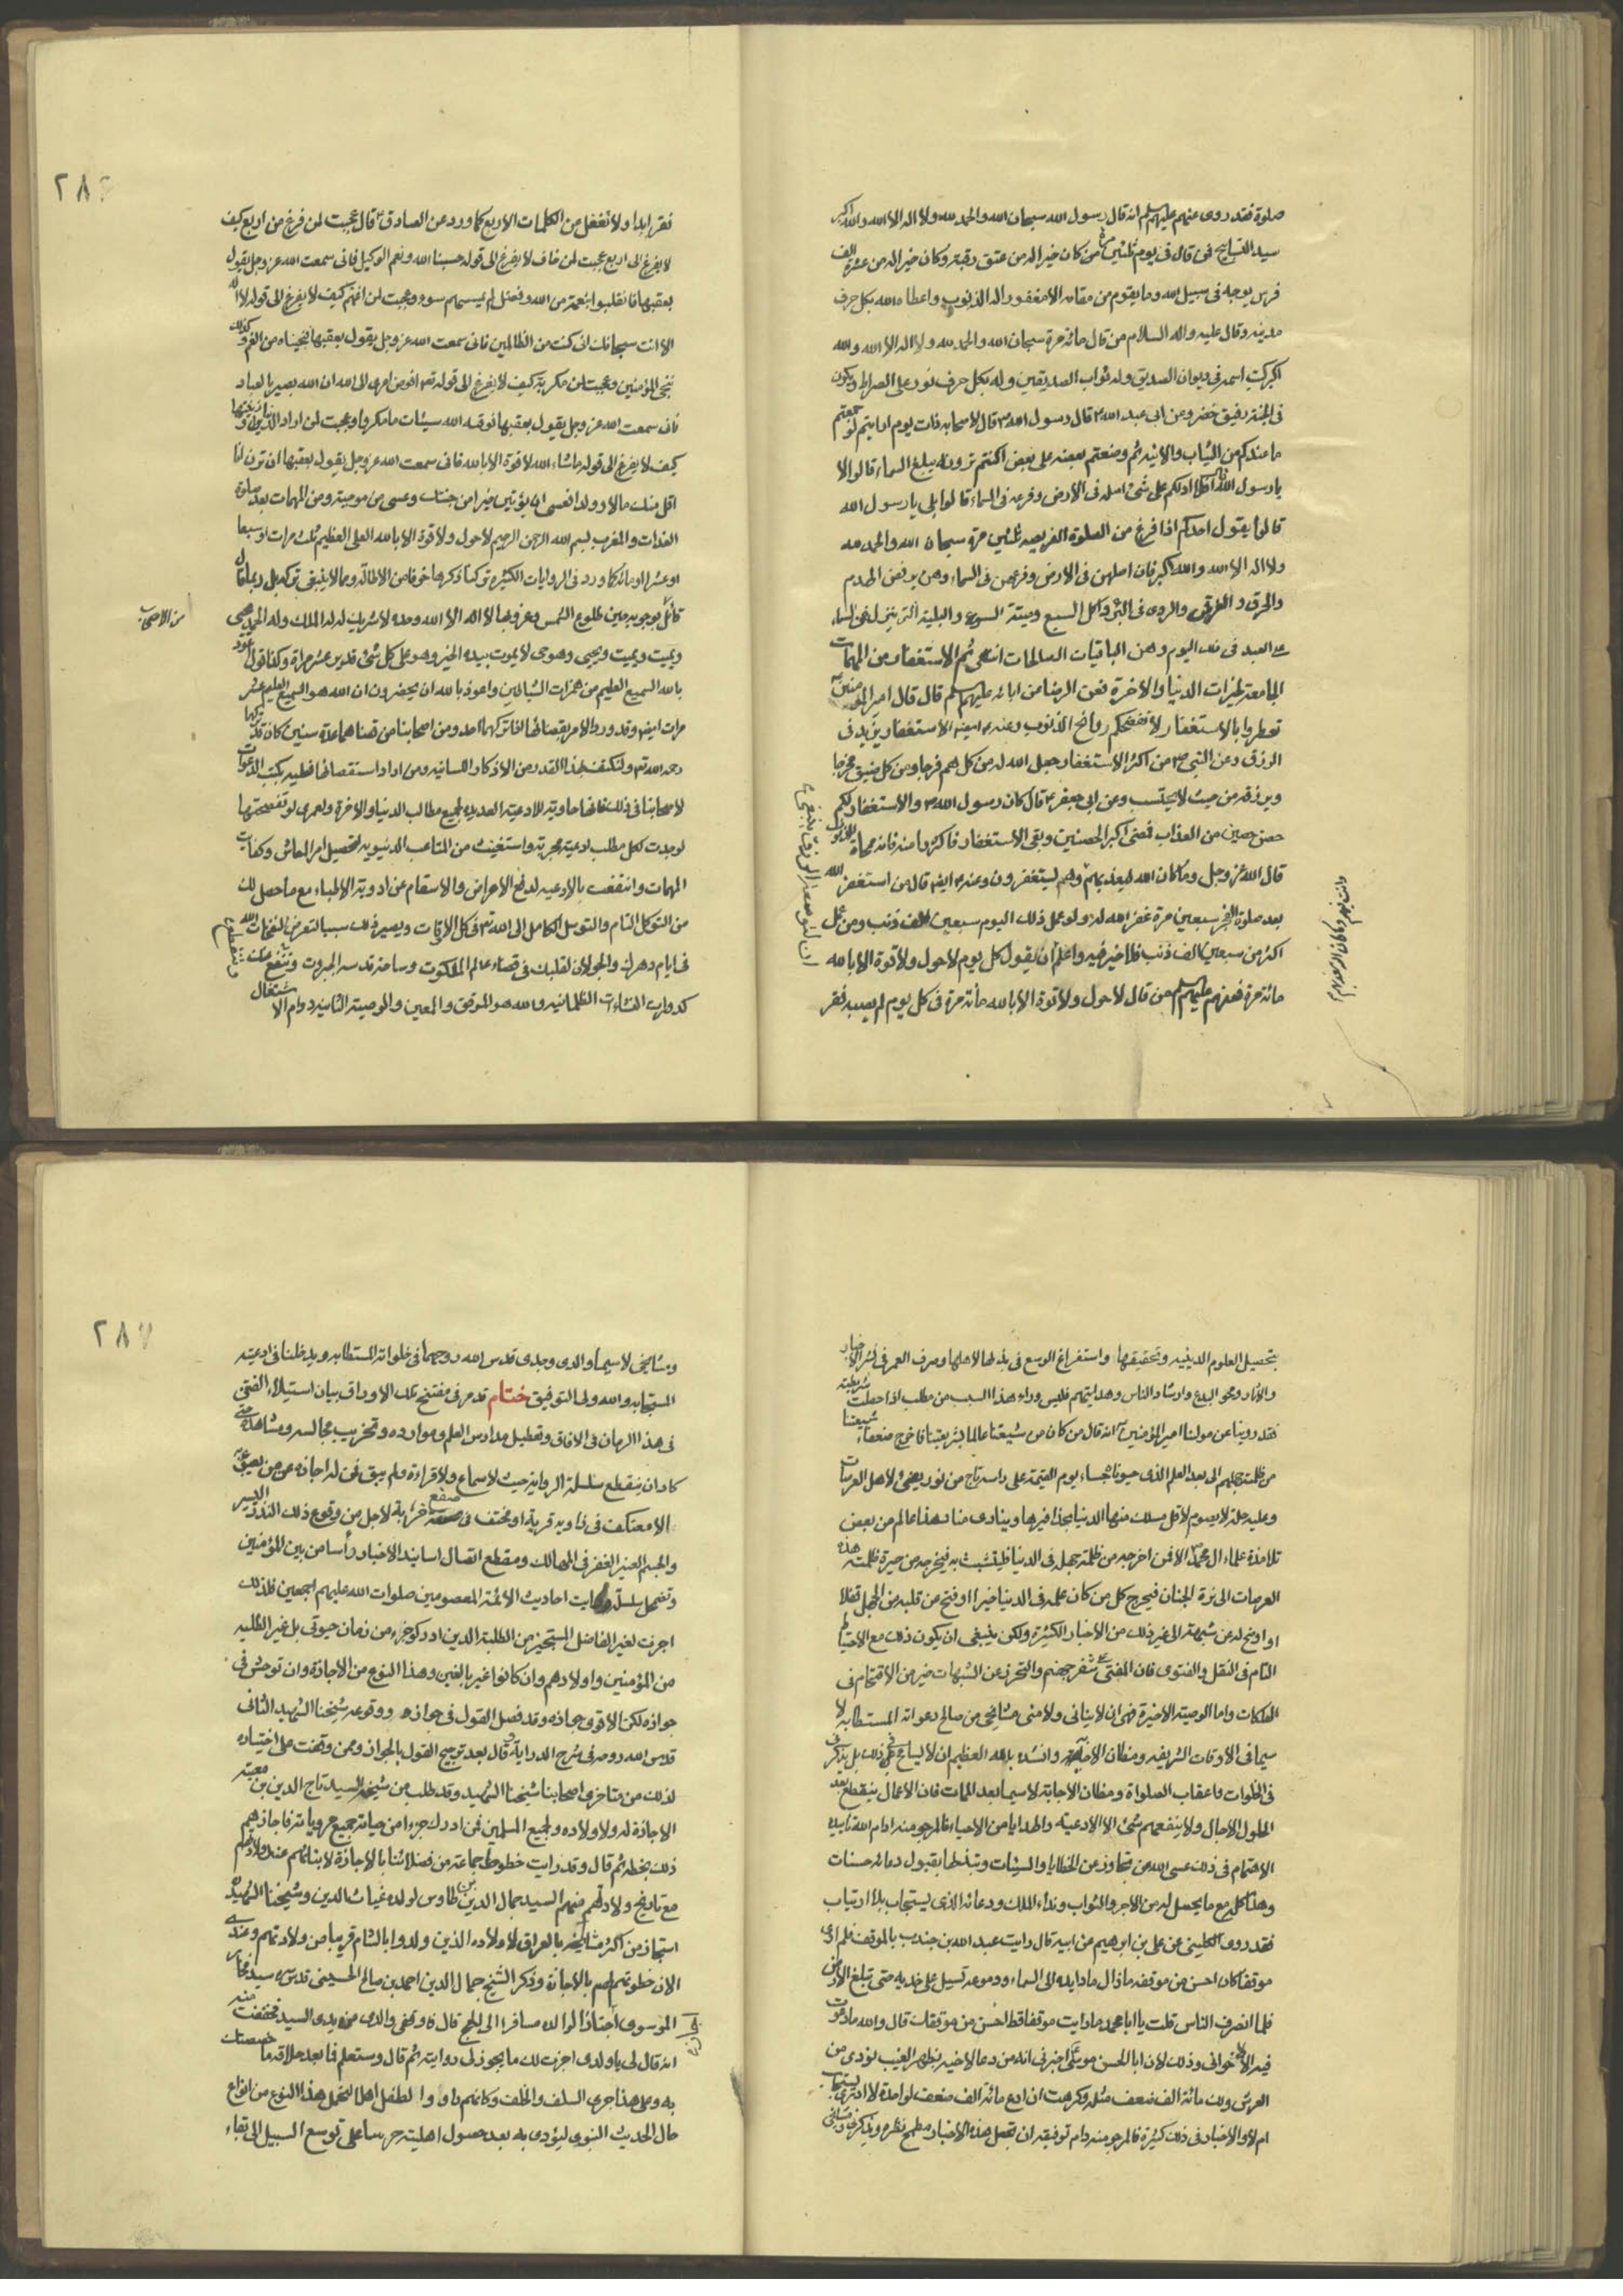 صلوة فقد روى عنهم عليهم السلم انه قال رسول الله سبحان الله والحمد لله ولا اله الا الله والله اكبر
سيد التسابيح فمن قال فى يوم ثلثين مرة كان خيرا له من عتق رقبة وكان خيرا له من عشرة الف
فرس يوجه فى سبيل الله وما يقوم من مقامه الا مغفورا له الذنوب واعطاه الله بكل حرف
مدينه وقال عليه واله السلام من قال مائة مرة سبحان الله والحمد لله ولا اله الا الله والله
اكبر كتب اسمه فى ديوان الصديقين وله ثواب الصديقين وله بكل حرف نور على الصراط ويكون
فى الجنة رفيق خضر وعن ابى عبد الله قال رسول الله قال لاصحابه ذات يوم ارايتم لو جمعتم
ما عندكم من الثياب والانيه ثم وضعتم بعضه على بعض اكنتم ترونه يبلغ السماء قالوا لا
يا رسول الله قال افلا ادلكم على شئ اصله فى الارض وفرعه فى السماء قالوا بلى يا رسول الله
قال يقول احدكم اذا فرغ من الصلوة الفريضه ثلثين مرة سبحان الله والحمد لله
ولا اله الا الله والله اكبر فان اصلهن فى الارض وفرعهن فى السماء وهن يدفعن الهدم
والحرق والغرق والتردى فى البئر واكل السبع وميتة السوء والبلية التى تنزل من السماء
على العبد فى ذلك اليوم وهن الباقيات الصالحات انتهى ثم الاستغفار من المهمات
الجامعة لخيرات الدنيا والاخرة فعن الرضا عن ابائه عليهم السلم قال قال امير المؤمنين
تعطروا بالاستغفار لا تفضحكم روائح الذنوب وعنه ايضا الاستغفار يزيد فى
الرزق وعن النبى من اكثر الاستغفار جعل الله له من كل هم فرجا ومن كل ضيق مخرجا
ويرزقه من حيث لا يحتسب وعن ابى جعفر قال كان رسول الله والاستغفار لكم
حصن حصين من العذاب فمضى اكبر الحصنين وبقى الاستغفار فاكثروا منه فانه ممحاة للذنوب
قال الله عز وجل وما كان الله ليعذبهم وهم يستغفرون وعنه ايضا قال من استغفر الله
بعد صلوة الفجر سبعين مرة غفر الله له ولو عمل ذلك اليوم سبعين الف ذنب ومن عمل
اكثر من سبعين الف ذنب فلا خير فيه واعلم ان يقول كل يوم لا حول ولا قوة الا بالله
مائة مرة فعنهم عليهم السلم من قال لا حول ولا قوة الا بالله مائة مرة فى كل يوم لم يصبه فقر
٢٨٦
فقر ابدا ولا تغفل من الكلمات الاربع كما ورد عن الصادق قال عجبت لمن فرغ من اربع كيف
لا يفزع الى اربع عجبت لمن خاف لا يفزع الى قوله حسبنا الله ونعم الوكيل فانى سمعت الله عز وجل يقول
بعقبها فانقلبوا بنعمة من الله وفضل لم يمسسهم سوء وعجبت لمن اغتم كيف لا يفزع الى قوله لا اله
الا انت سبحانك انى كنت من الظالمين فانى سمعت الله عز وجل يقول بعقبها فنجيناه من الغم وكذلك
ننجى المؤمنين وعجبت لمن مكر به كيف لا يفزع الى قوله تعالى افوض امرى الى الله ان الله بصير بالعباد
فانى سمعت الله عز وجل يقول بعقبها فوقيه الله سيئات ما مكروا وعجبت لمن اراد الدنيا وزينتها
كيف لا يفزع الى قوله ما شاء الله لا قوة الا بالله فانى سمعت الله عز وجل يقول بعقبها ان ترن انا
اقل منك مالا وولدا فعسى ان يؤتين خيرا من جنتك وعسى من موجبة ومن المهمات بعد صلوة
الغداة والمغرب بسم الله الرحمن الرحيم لا حول ولا قوة الا بالله العلى العظيم ثلث مرات او سبعا
او عشرا او مائة كما ورد فى الروايات الكثيره تركنا ذكرها خوفا من الاطاله ومما لا ينبغى تركه بل ربما قال
قائل بوجوبه حين طلوع الشمس وغروبها لا اله الا الله وحده لا شريك له له الملك وله الحمد يحيى
من الاصحاب
ويميت ويميت ويحيى وهو حى لا يموت بيده الخير وهو على كل شئ قدير عشر مرات وكذا قول اعوذ
بالله السميع العليم من همزات الشياطين واعوذ بالله ان يحضرون ان الله هو السميع العليم عشر
مرات ايضا وقد ورد الامر بقضائها اذا تركها احد ومن اصحابنا من قضاهما عدة سنين كان قد تركها
رحمه الله ثم ولنكتف بهذا القدر من الاذكار اللسانيه ومن اراد استقصائها فعليه بكتب الدعوات
لاصحابنا فى ذلك فانها حاوية للادعية العديده لجميع مطالب الدنيا والاخرة ولعمرى لو تفحصتها
لوجدت لكل مطلب ادعية مجربة واستغنيت من المتاعب الدنيويه لتحصيل امر المعاش وكفايت
المهمات وانتفعت بالادعيه لدفع الامراض والاسقام عن ادوية الاطباء مع ما حصل لك
من التوكل التام والتوسل الكامل الى الله تعالى فى كل الاوقات ويصير ذلك سببا لتعرض لنفحات الله
فى ايام دهرك والجولان لقلبك فى فضاء عالم الملكوت وساحة قدسه الجبروت وتنقع عنك
كدورات النشاءات الظلمانيه والله هو الموفق والمعين والوصية الثانيه دوام الاشتغال
بتحصيل العلوم الدينيه وتحقيقها واستفراغ الوسع فى بذلها لاهلها وصرف العمر فى نشر الاخبار
والاثار ومحو البدع وارشاد الناس وهدايتهم فليس وراء هذا السبب من مطلب اذا حصلت شريطته
فقد روينا عن مولينا امير المؤمنين انه قال من كان من شيعتنا عالما بشريعتنا فاخرج ضعفاء شيعتنا
من ظلمة جهلهم الى نور العلم الذى حبوناه جاء يوم القيمة على راسه تاج من نور يضئ لاهل العرصات
وعليه حلة لا يقوم لاقل سلك منها الدنيا بحذافيرها وينادى مناد هذا عالم من بعض
تلامذة علماء ال محمد الا فمن اخرجه من ظلمة جهله فى الدنيا فليتشبث به ليخرجه من حيرة ظلمة هذه
العرصات الى نزه الجنان فيخرج كل من كان علمه فى الدنيا خيرا او فتح من قلبه من الجهل قفلا
او اوضح له عن شبهة الى غير ذلك من الاخبار الكثيرة ولكن ينبغى ان يكون ذلك مع الاحتياط
التام فى النقل والفتوى فان المفتى على شفير جهنم والتحرز عن الشبهات خير من الاقتحام فى
الهلكات واما الوصية الاخيرة فهى ان لا ينسانى ولا ينسى مشايخى من صالح دعواته المستطابه لا
سيما فى الاوقات الشريفه ومظان الاجابة وانشده بالله العظيم ان لا يسامح فى ذلك بل يذكرنى
فى الخلوات واعقاب الصلواة ومظان الاجابة لا سيما بعد الممات فان الاعمال ينقطع بعد
الحلول الاجال ولا ينفعهم شئ الا الادعية والهدايا من الاحياء فالمرجو منه ادام الله تاييده
الاهتمام فى ذلك عسى الله عن يتجاوز عن الخطايا والسيئات وتبدلها بقبول دعائه حسنات
وهذا كله مع ما يحصل له من الاجر والثواب ونداء الملك ودعائه الذى يستجاب بلا ارتياب
فقد روى الكلينى عن على بن ابرهيم عن ابيه قال رايت عبد الله بن جندب بالموقف فلم ار
موقفا كان احسن من موقفه ما زال مادا يده الى السماء ودموعه تسيل على خديه حتى تبلغ الارض
فلما انصرف الناس قلت يا ابا محمد ما رايت موقفا قط احسن من موقفك قال والله ما دعوت
فيه الا لاخوانى وذلك لان ابا الحسن موسى اخبرنى انه من دعا لاخيه بظهر الغيب نودى من
العرش ولك مائة الف ضعف مثله وكرهت ان ادع مائة الف ضعف لواحدة لا ادرى يستجاب
ام لا والاخبار فى ذلك كثيرة فالمرجو منه دام توفيقه ان تجعل هذه الاخبار مطمح نظره ويذكرنى
٢٨٧
ومشايخى لا سيما والدى وجدى قدس الله روحهما فى خلواته المستطابه ويدخلنا فى ادعيته
المستجابه والله ولى التوفيق ختام قد مر فى مفتتح تلك الاوراق بيان استيلاء الفتن
فى هذا الزمان فى الافاق وتعطيل مدارس العلم وموارده وتخريب مجالسه ومشاهده حتى
كاد ان ينقطع سلسلة الرواية حيث لا سماع ولا قراءة ولم يبق ممن له اجازه
الا معتكف فى زاويه قرية او مختف فى صقع خرابة لاجل من وقوع ذلك النذر اليسير
والجم الغفير فى المهالك ومقطع اتصال اسانيد الاخبار رأسا من بين المؤمنين
وتضمحل سلسلة رواية احاديث الائمة المعصومين صلوات الله عليهم اجمعين فلذلك
اجزت لغير الفاضل المستجيز من الطلبة الذين ادركوا جزء من زمان حيوتى بل غير الطلبه
من المؤمنين واولادهم وان كانوا غير بالغين وهذا النوع من الاجازة وان توحش فى
جوازه لكن الاقوى جوازه وقد فصل القول فى جوازه ووقوعه شيخنا الشهيد الثانى
قدس الله روحه فى شرح الدراية قال بعد ترجيح القول بالجواز وممن وقفت على اختياره
لذلك من متاخرى اصحابنا شيخنا الشهيد وقد طلب من شيخه السيد تاج الدين بن معية
الاجازة له ولاولاده ولجميع المسلمين ممن ادرك جزءا من حياته جميع مروياته فاجازهم
ذلك بخطه ثم قال وقد رايت خطوط جماعة من فضلائنا بالاجازة لابنائهم عند ولادتهم
مع تاريخ ولادتهم منهم السيد جمال الدين بن طاوس لولده غياث الدين وشيخنا الشهيد
استجاز من اكثر مشايخه بالعراق لاولاده الذين ولدوا بالشام قريبا من ولادتهم وعندى
الان خطوطهم لهم بالاجازة وذكر الشيخ جمال الدين احمد بن صالح الحسينى قدس سره ان السيد فخار
الموسوى اجتاز الوالده مسافرا الى الحج قال فاوقفنى والدى بين يدى السيد فحفظت منه
انه قال لى يا ولدى اجزت لك ما يجوز لى روايته ثم قال وستعلم فيما بعد حلاوة ما خصصتك
به وعلى هذا جرى السلف والخلف وكانهم راوا الطفل اهلا لتحمل هذا النوع من انواع
حال الحديث النبوى ليؤدى به بعد حصول اهليته حرصا على توسع السبيل الى بقاء